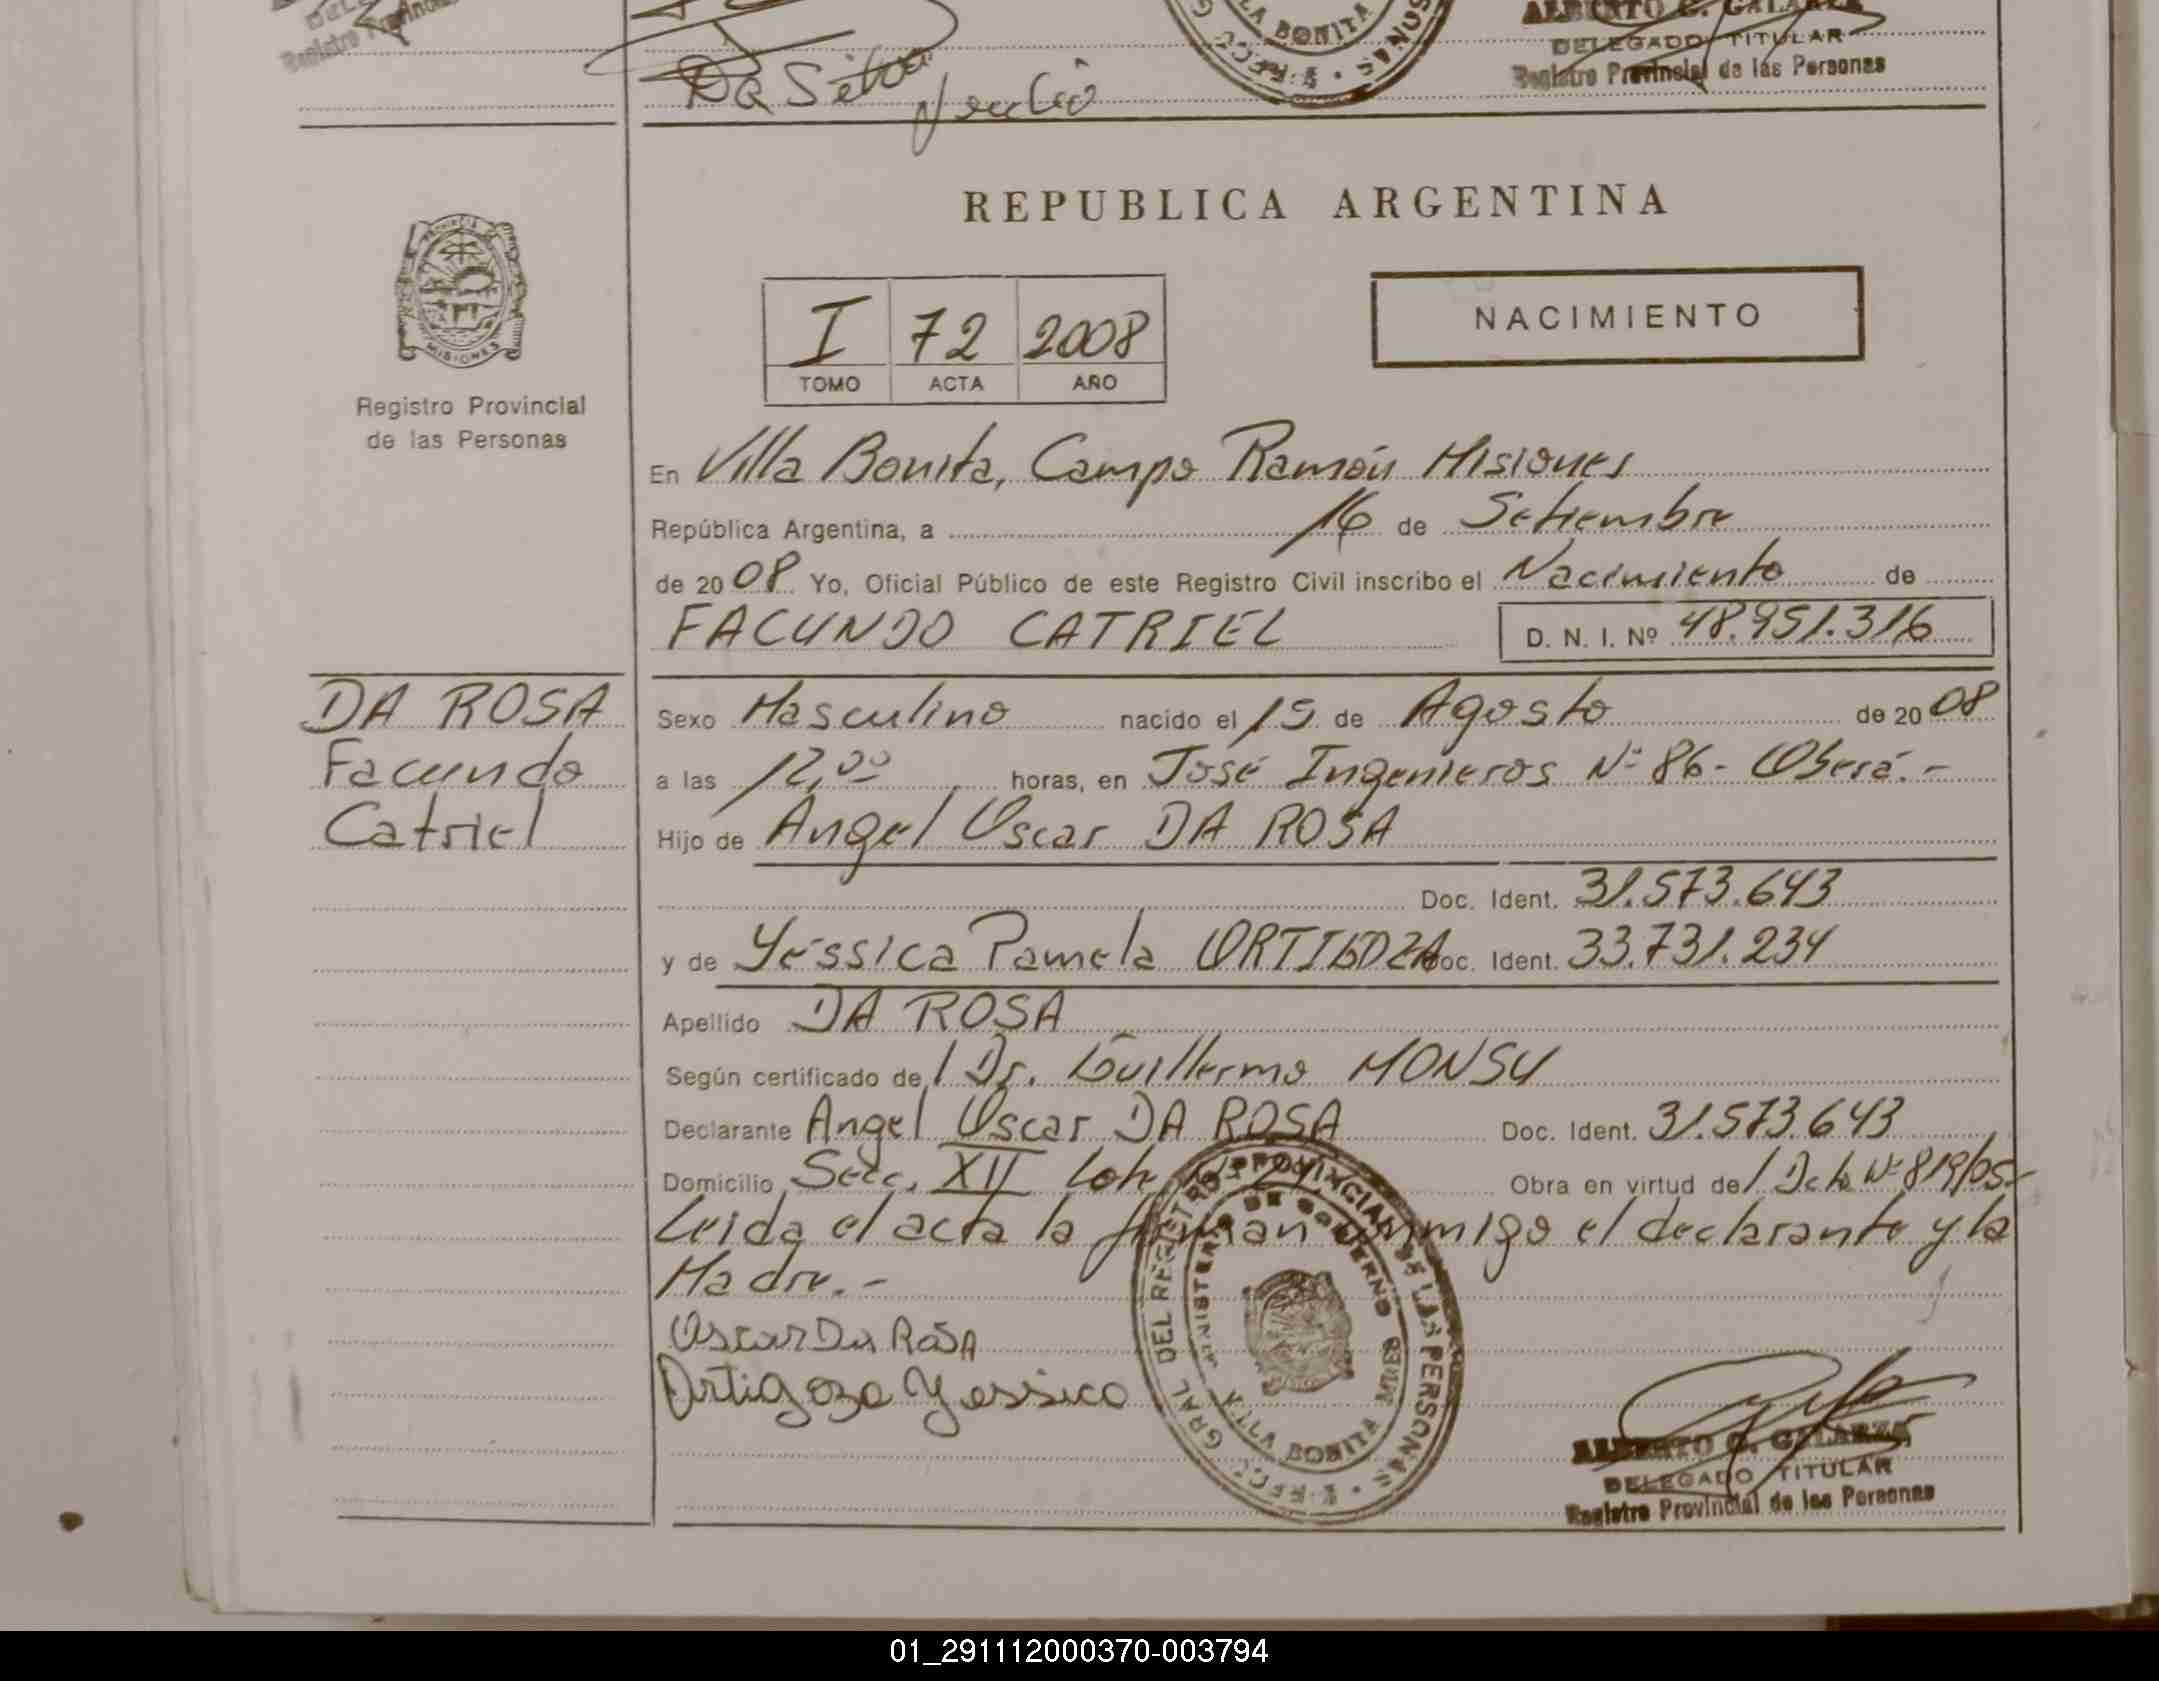 Da Silva
LA BONITA
ALBERTO C. GALARZA
DELEGADO TITULAR
Registro Provincial de las Personas
REPUBLICA ARGENTINA
PROVINCIA DE
MISIONES
Registro Provincial
de las Personas
I 72 2008
TOMO ACTA AÑO
NACIMIENTO
En Villa Bonita, Campo Ramón Misiones
República Argentina, a 16 de Setiembre
de 2008 Yo, Oficial Público de este Registro Civil inscribo el Nacimiento de
FACUNDO CATRIEL D. N. I. Nº 48.951.316
DA ROSA
Facundo
Catriel
Sexo Masculino nacido el 15 de Agosto de 2008
a las 12,00 horas, en José Ingenieros Nº 86- Oberá.-
Hijo de Angel Oscar DA ROSA
Doc. Ident. 31.573.643
y de Yéssica Pamela ORTIGOZA Doc. Ident. 33.731.234
Apellido DA ROSA
Según certificado del Dr. Guillermo MONSU
Declarante Angel Oscar DA ROSA Doc. Ident. 31.573.643
Domicilio Secc. XII Lote Obra en virtud del Dcto Nº 819/05-
Leida el acta la firman conmigo el declarante y la
Madre.-
Oscar Da RosA
Ortigoza Yessica
GRAL DEL REGISTRO PROVINCIAL DE LAS PERSONAS
MINISTERIO DE GOBIERNO
VILLA BONITA MNES
ALBERTO C. GALARZA
DELEGADO TITULAR
Registro Provincial de las Personas
01_291112000370-003794